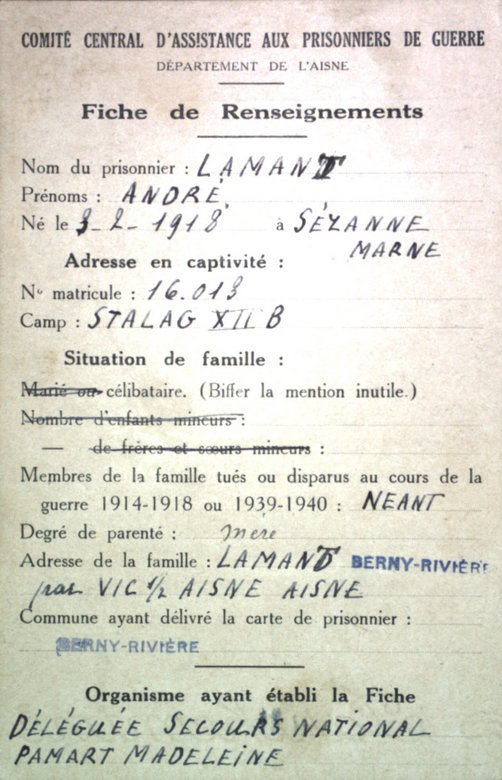 COMITÉ CENTRAL D'ASSISTANCE AUX PRISONNIERS DE GUERRE
DÉPARTEMENT DE L'AISNE
Fiche de Renseignements
Nom du prisonnier : LAMANT
Prénoms : ANDRÉ.
Né le 3-2-1918 à SÉZANNE
MARNE
Adresse en captivité :
No matricule : 16.013
Camp : STALAG XII B
Situation de famille :
Marié ou célibataire. (Biffer la mention inutile.)
Nombre d'enfants mineurs :
— de frères et sœurs mineurs :
Membres de la famille tués ou disparus au cours de la
guerre 1914-1918 ou 1939-1940 : NEANT
Degré de parenté : mère
Adresse de la famille : LAMANT BERNY-RIVIÈRE
par VIC s/ AISNE AISNE
Commune ayant délivré la carte de prisonnier :
BERNY-RIVIÈRE
Organisme ayant établi la Fiche
DÉLÉGUÉE SECOURS NATIONAL
PAMART MADELEINE